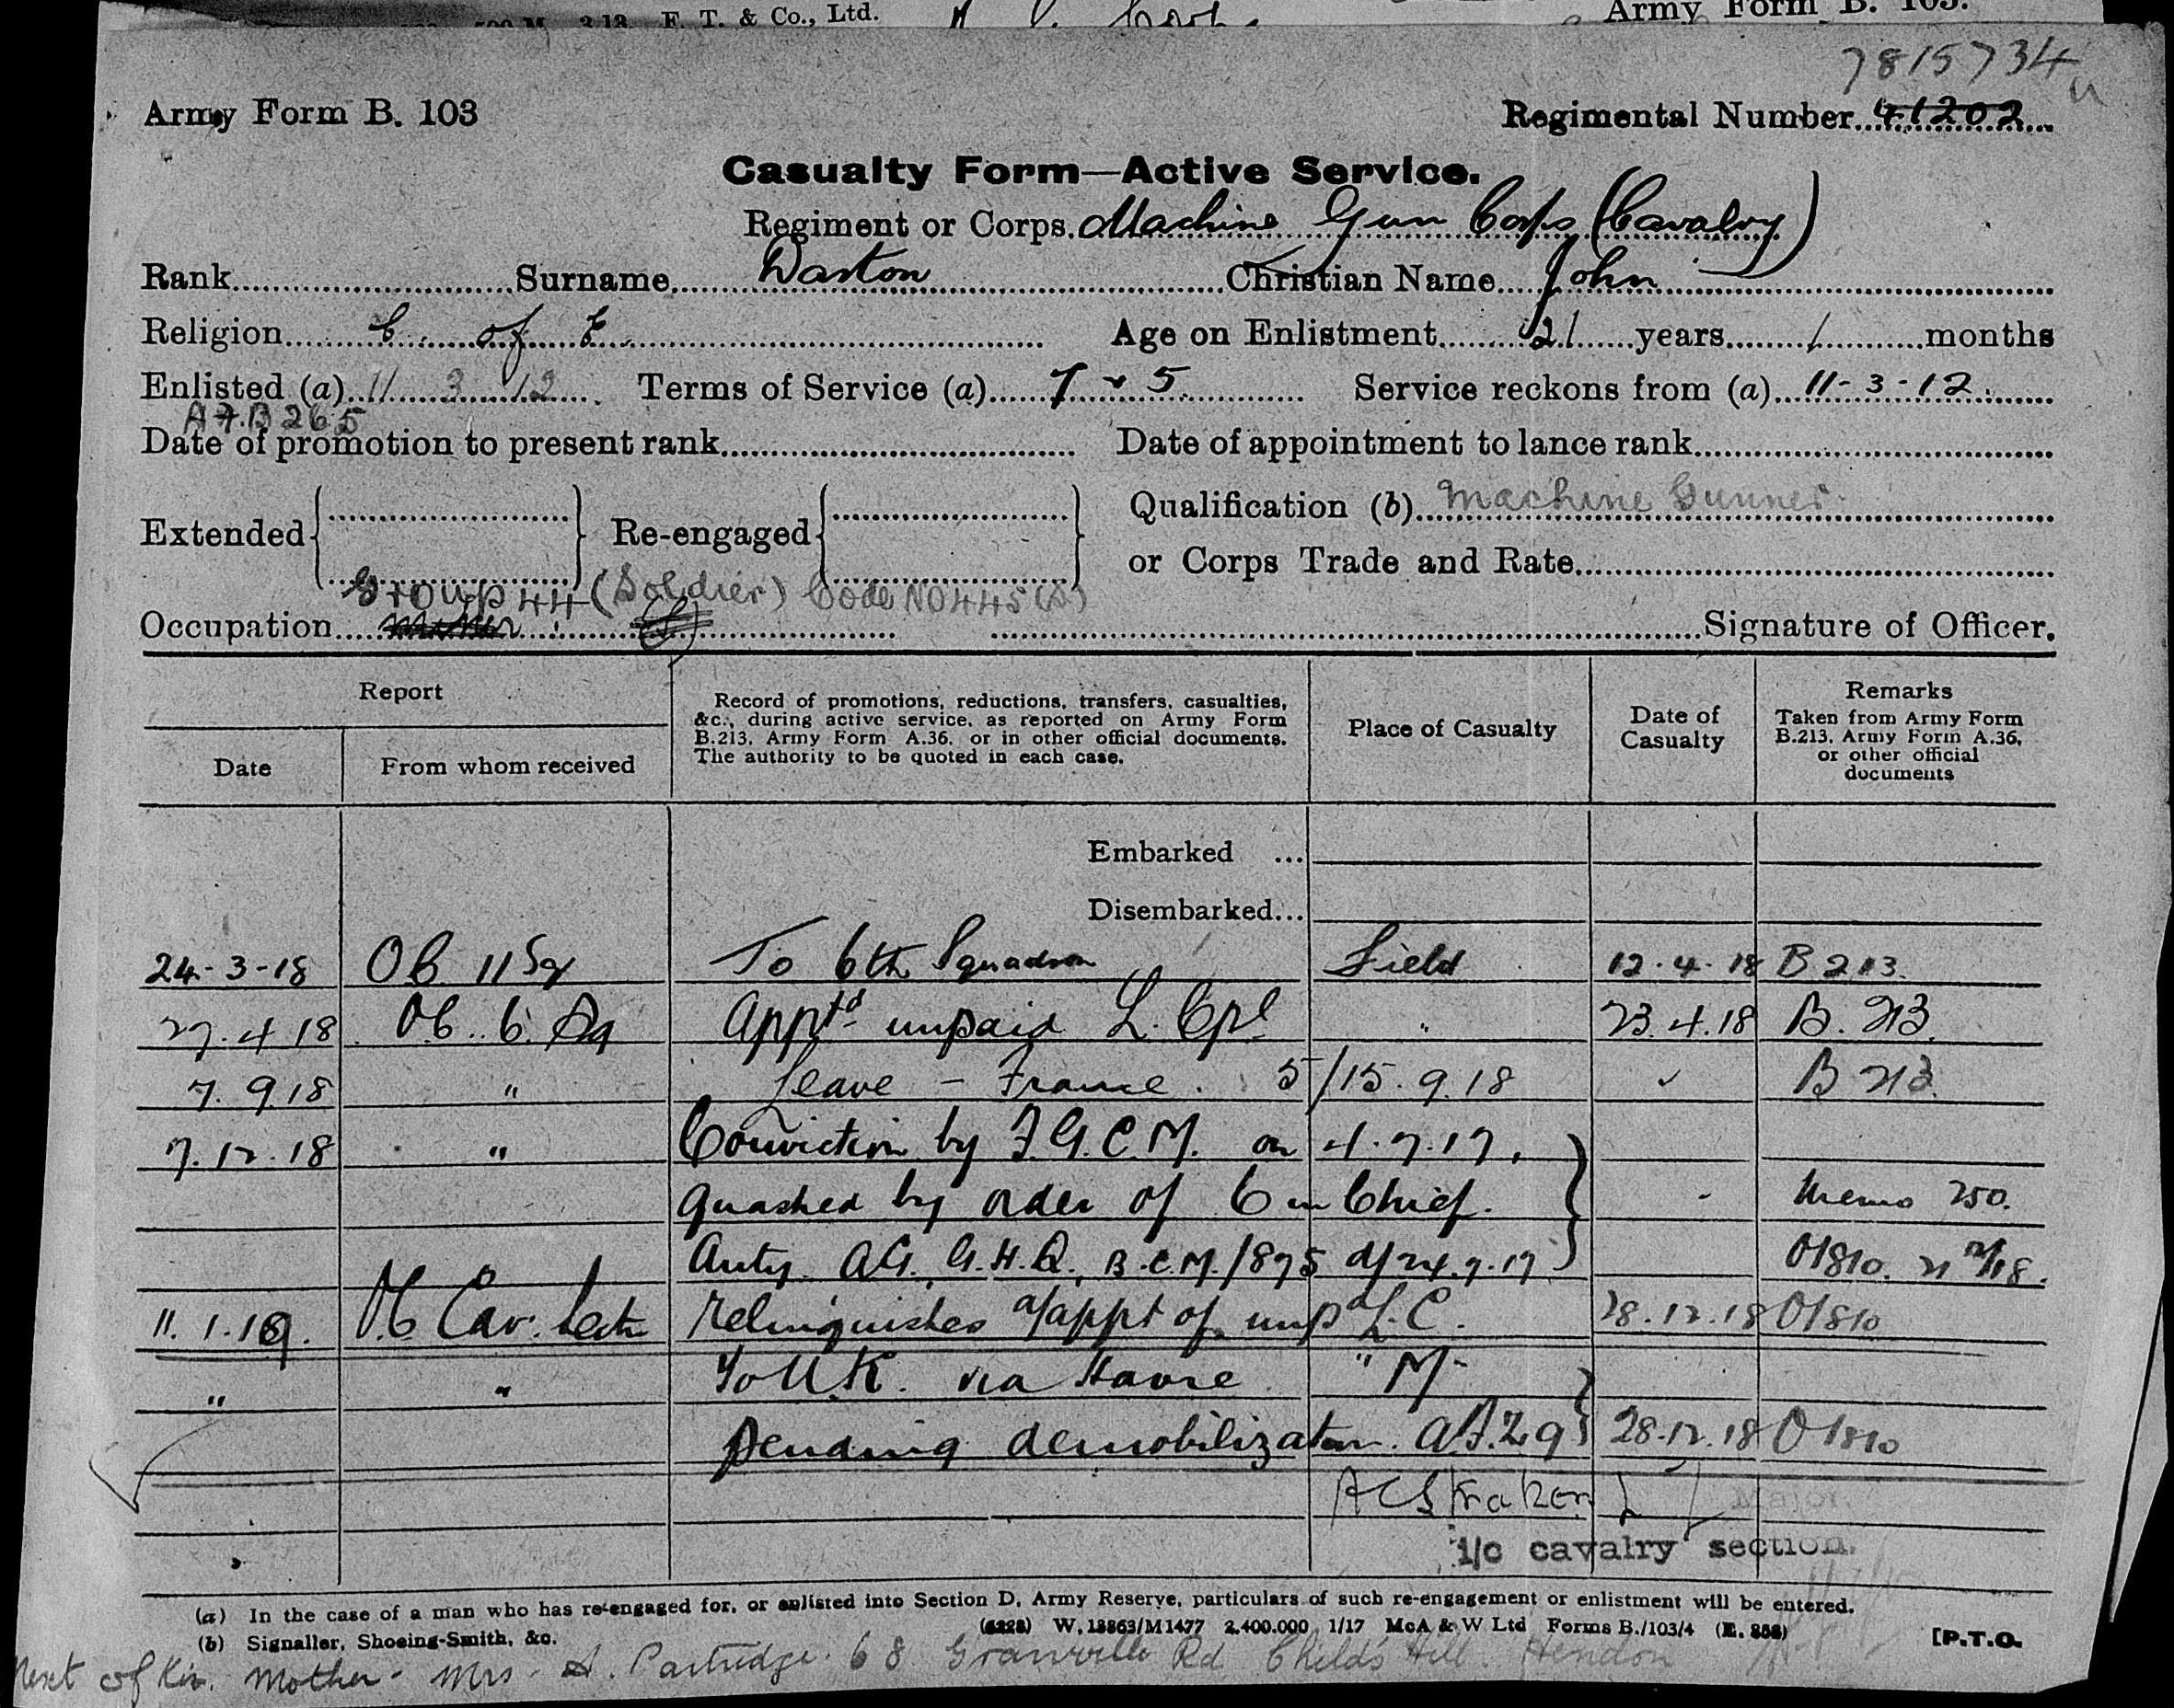 F. T. & Co., Ltd. Army Form B. 103.
7815734
Army Form B. 103 Regimental Number 41202
Casualty Form—Active Service.
Regiment or Corps Machine Gun Corps (Cavalry)
Rank Surname Daston Christian Name John
Religion C. of E. Age on Enlistment 21 years 1 months
Enlisted (a) 11 3 12 Terms of Service (a) 7 & 5 Service reckons from (a) 11-3-12.
A.F.B 265
Date of promotion to present rank Date of appointment to lance rank
Qualification (b) Machine Gunner
Extended Re-engaged
or Corps Trade and Rate
Group 44 (Soldier) Code No 445 (S)
Occupation Signature of Officer.
Report
Date
From whom received
Record of promotions, reductions, transfers, casualties,
&c., during active service, as reported on Army Form
B.213, Army Form A.36, or in other official documents.
The authority to be quoted in each case.
Place of Casualty
Date of
Casualty
Remarks
Taken from Army Form
B.213, Army Form A.36,
or other official
documents
Embarked ...
Disembarked...
24-3-18 OC 11 Sq To 6th Squadron Field 12.4.18 B213.
27.4 18 OC. 6. Sq Apptd unpaid L. Cpl " 23.4.18 B. 213.
7.9.18 " Leave - France. 5/15.9.18 B 213.
7.12.18 " Conviction by F.G.C.M. on 4.7.17,
quashed by order of C in Chief. Memo 250.
Auty. A.G., G.H.Q., B.C.M./875 d/24.7.17 O1810.
11.1.19. OC Cav. Sectn Relinquishes a/appt of unp L.C. 28.12.18 O1810
" " To U.K. via Havre "M"
pending demobilization. A.F.Z 9 28.12.18 O1810
A C Straker Major
i/c cavalry section.
(a) In the case of a man who has re-engaged for, or enlisted into Section D, Army Reserve, particulars of such re-engagement or enlistment will be entered.
(b) Signaller, Shoeing-Smith, &c. (6228) W. 13863/M1477 2,400,000 1/17 McA & W Ltd Forms B./103/4 (E. 858) [P.T.O.
Next of Kin. Mother - Mrs. A. Partridge. 68 Granville Rd Child's Hill. Hendon